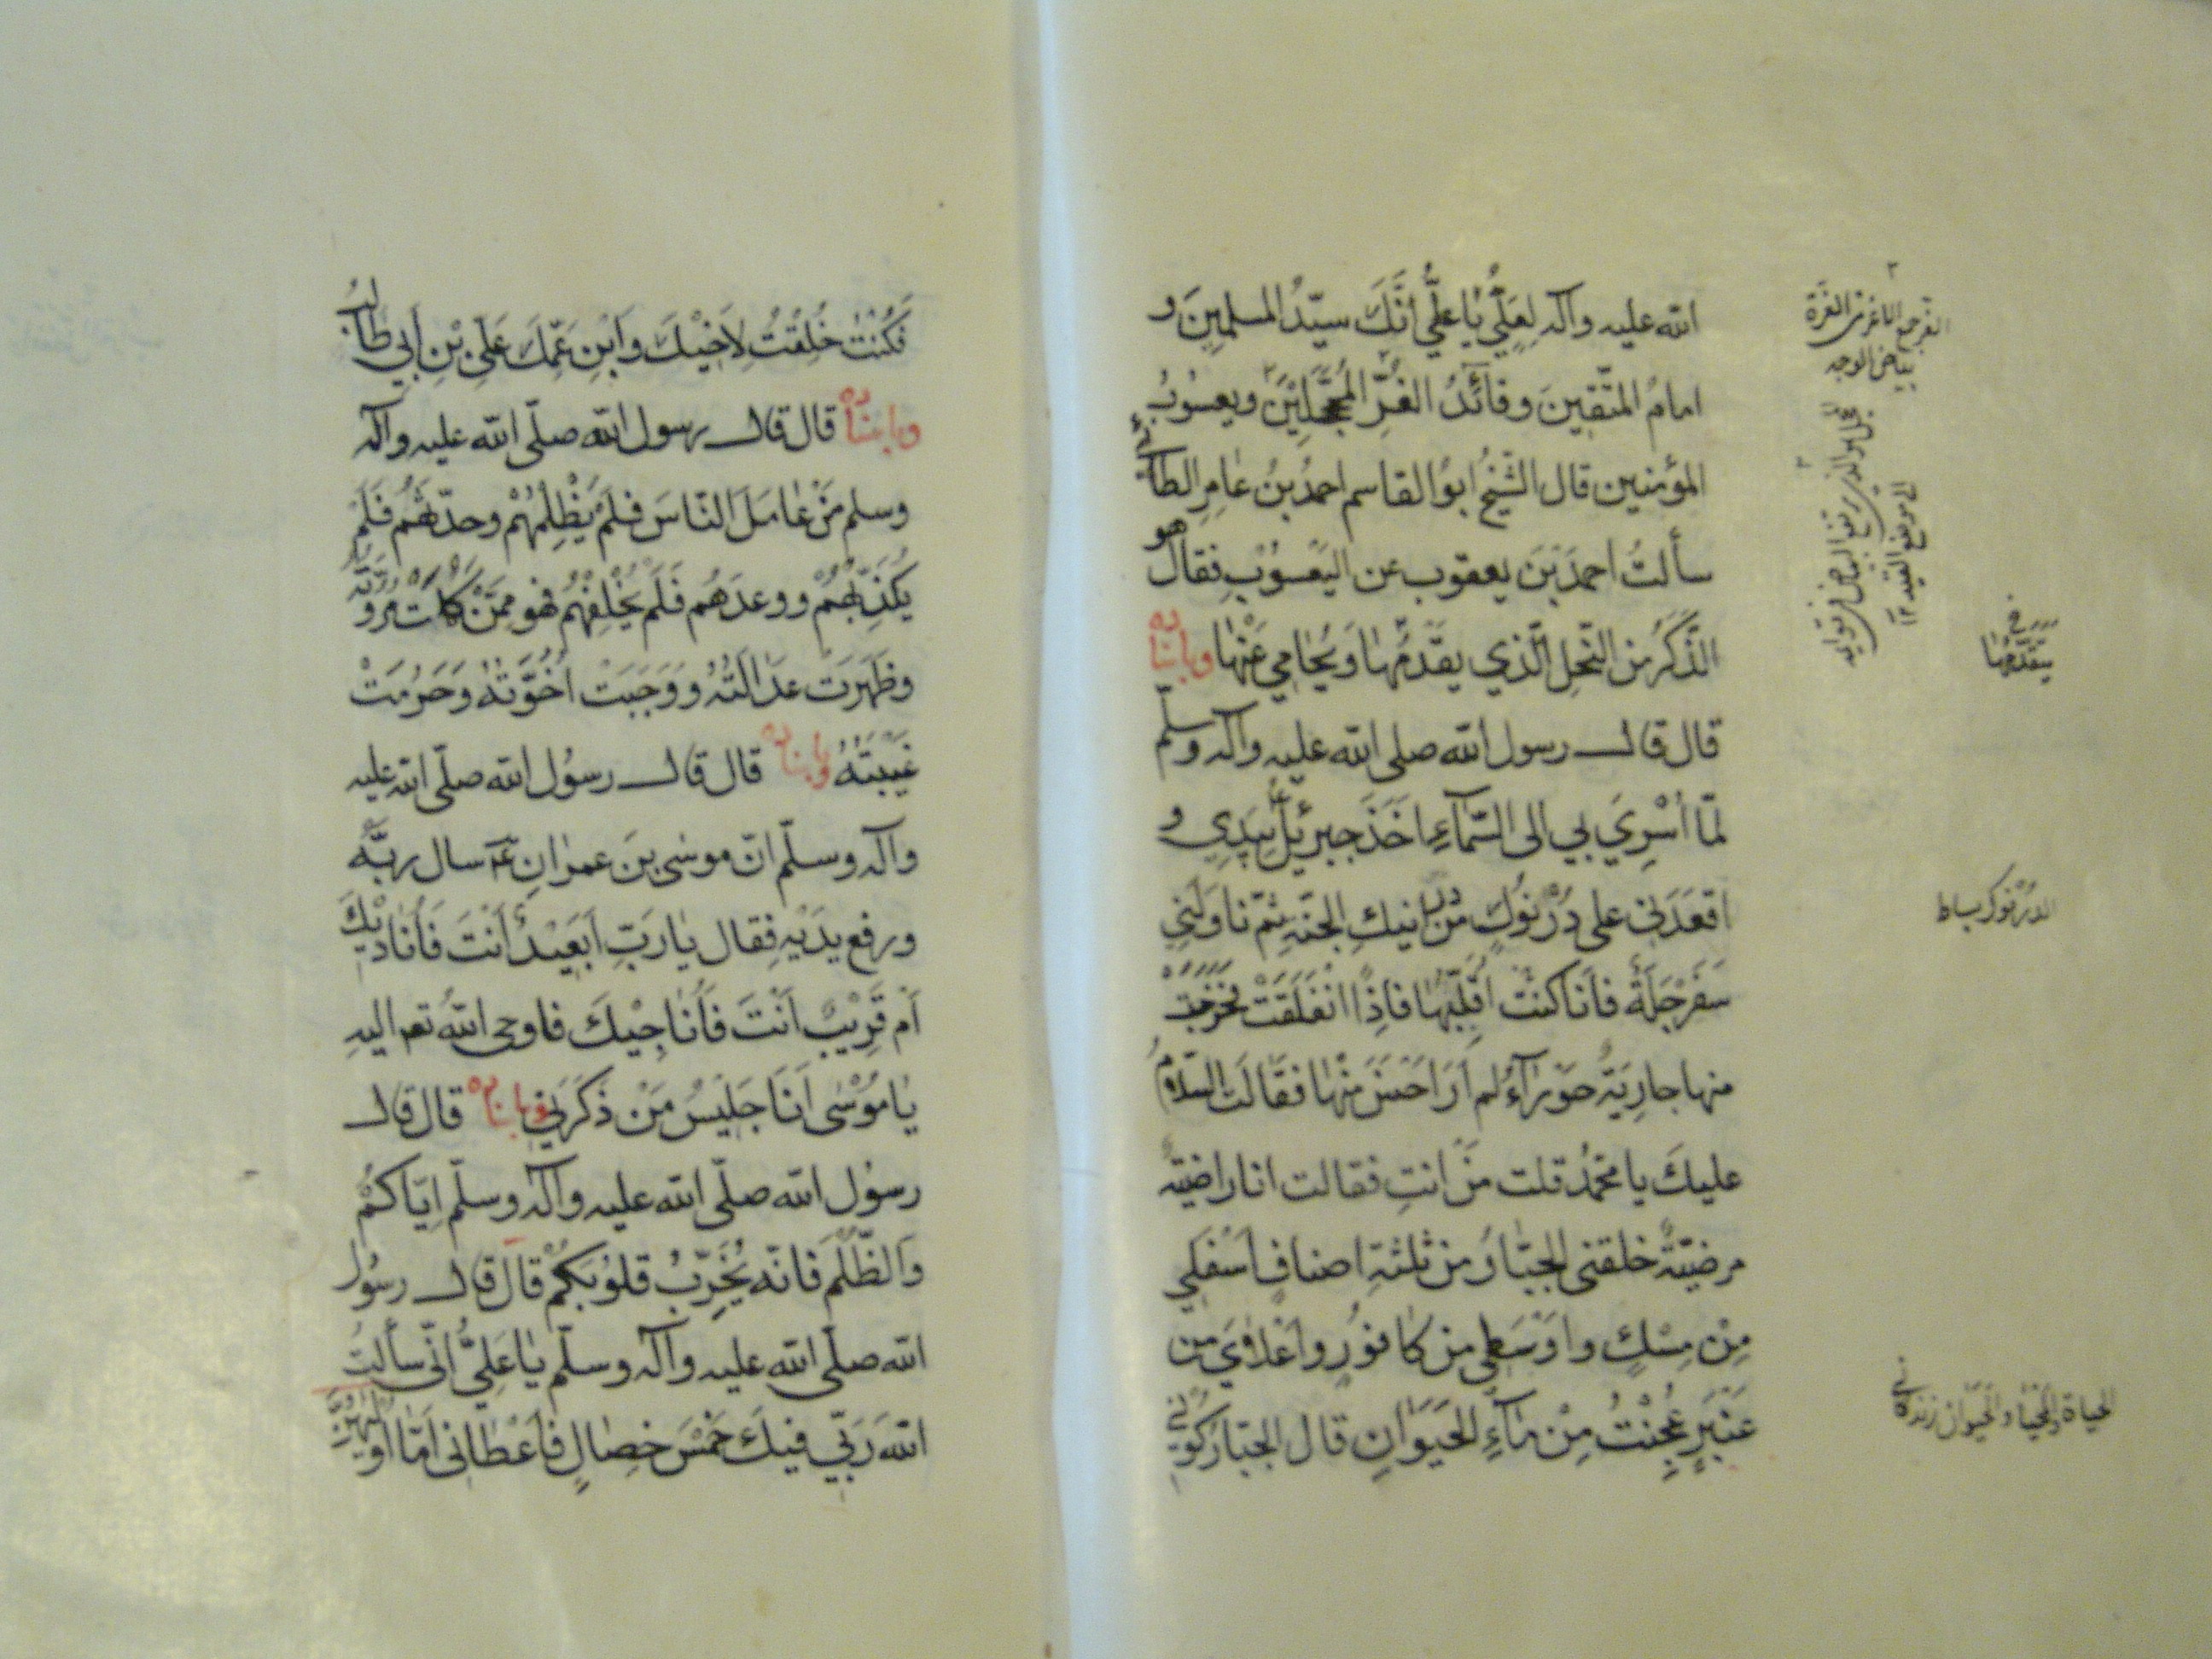 الله عليه وآله لعليّ يا عليّ انّك سيّد المسلمين و
امام المتّقين وقائد الغرّ المحجّلين ويعسوب
المؤمنين قال الشّيخ ابو القاسم احمد بن عامر الطائي
سألت احمد بن يعقوب عن اليعسوب فقال هو
الذّكر من النّحل الّذي يقدّمها ويحامي عنها وباسناده
قال قال رسول الله صلى الله عليه وآله وسلّم
لمّا أسري بي الى السّمآء اخذ جبرئيل بيدي و
اقعدني على درنوك من درانيك الجنّة ثمّ ناولني
سفرجلة فانا كنت اقلّبها فاذا انفلقت فخرجت
منها جارية حورآء لم ار احسن منها فقالت السّلام
عليك يا محمّد قلت من انت فقالت انا راضية
مرضيّة خلقني الجبّار من ثلثة اصناف اسفلي
من مسك واوسطي من كافور واعلاي من
عنبر عجنت من مآء الحيوان قال الجبّار كوني
الغر جمع الاغر من الغرة
بياض الوجه
يتقدّمها
الدرنوك بساط
الحياة والمحيا والحيوان زندگانی
فكنت خلقت لاخيك وابن عمّك عليّ بن أبي طالب
وباسناده قال قال رسول الله صلّى الله عليه وآله
وسلم من عامل النّاس فلم يظلمهم وحدّثهم فلم
يكذّبهم ووعدهم فلم يخلفهم فهو ممّن كملت مروّته
وظهرت عدالته ووجبت اخوّته وحرمت
غيبته وباسناده قال قال رسول الله صلّى الله عليه
وآله وسلّم انّ موسى بن عمران ع سال ربّه
ورفع يديه فقال يا ربّ ابعيد أنت فأناديك
أم قريب انت فأناجيك فاوحى الله تعم اليه
يا موسى انا جليس من ذكرني وباسناده قال قال
رسول الله صلّى الله عليه وآله وسلّم ايّاكم
والظّلم فانّه يخرّب قلوبكم قال قال رسول
الله صلّى الله عليه وآله وسلّم يا عليّ انّي سألت
الله ربّي فيك خمس خصال فأعطاني امّا اوليهنّ